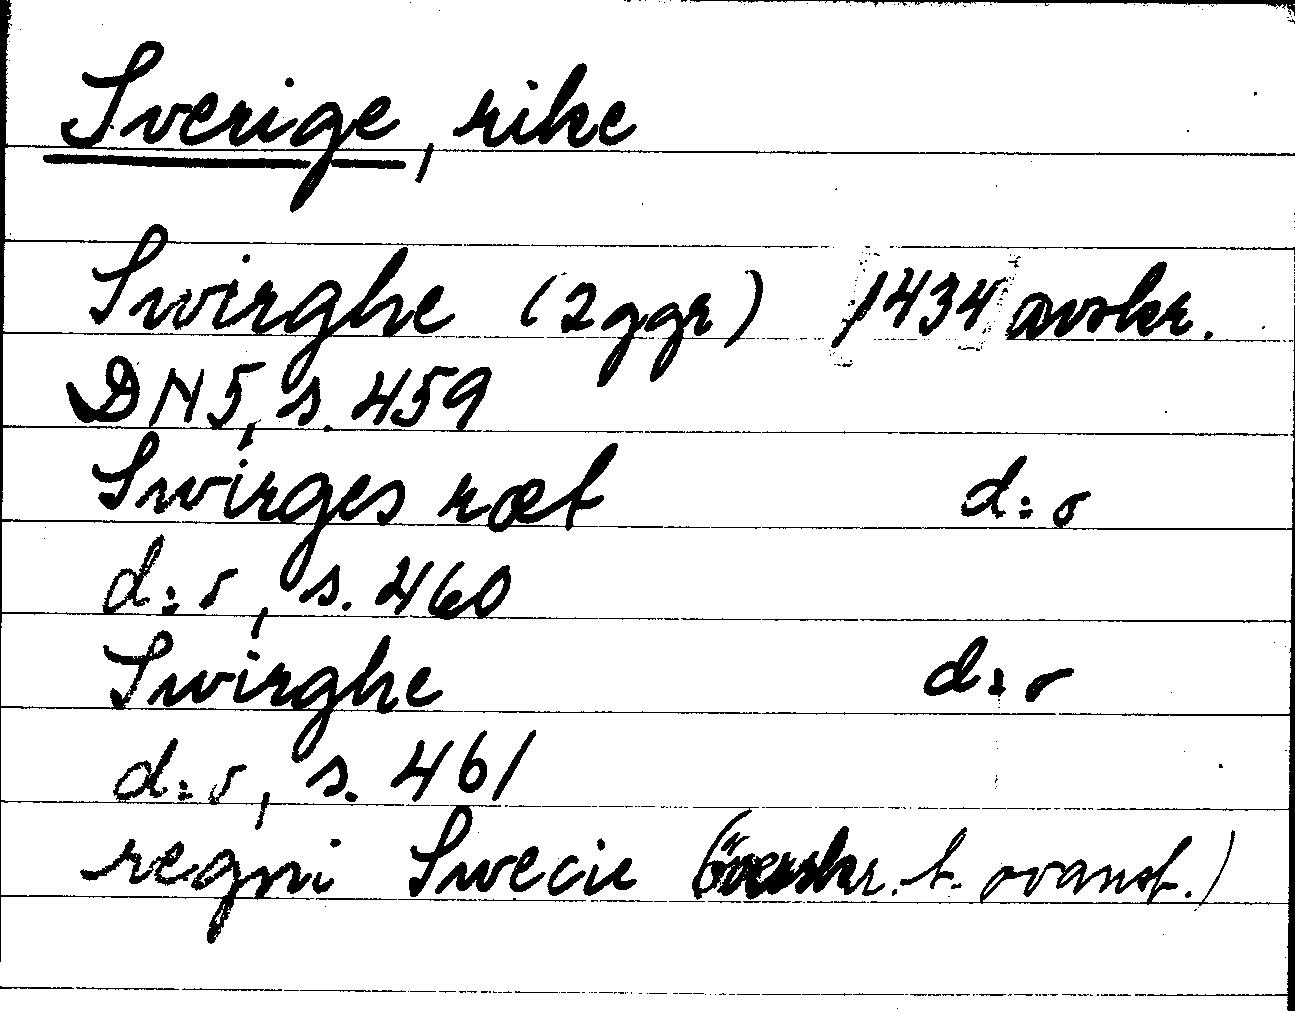 Sverige, rike
Swirghe (2 ggr) 1434 avskr.
DN 5, s. 459
Swirges ræt d:o
d:o, s. 460
Swirghe d:o
d:o, s. 461
regni Swecie (överskr. t. ovanst.)